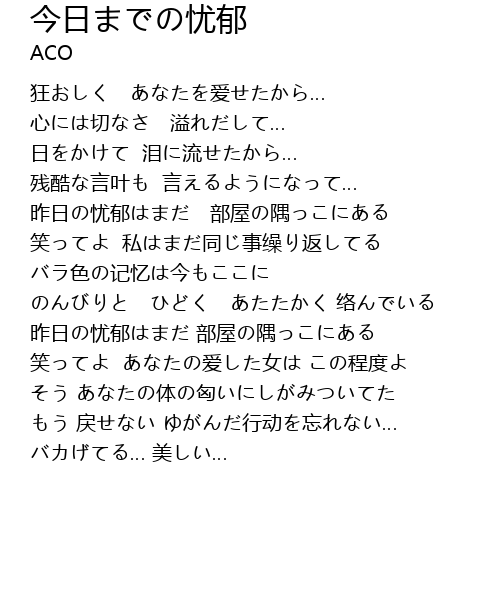 今日までの忧郁
ACO
狂おしく　あなたを爱せたから...
心には切なさ　溢れだして...
日をかけて  泪に流せたから...
残酷な言叶も  言えるようになって...
昨日の忧郁はまだ　部屋の隅っこにある
笑ってよ  私はまだ同じ事缲り返してる
バラ色の记忆は今もここに
のんびりと　ひどく　あたたかく 络んでいる
昨日の忧郁はまだ 部屋の隅っこにある
笑ってよ  あなたの爱した女は この程度よ
そう あなたの体の匂いにしがみついてた
もう 戻せない ゆがんだ行动を忘れない...
バカげてる... 美しい...